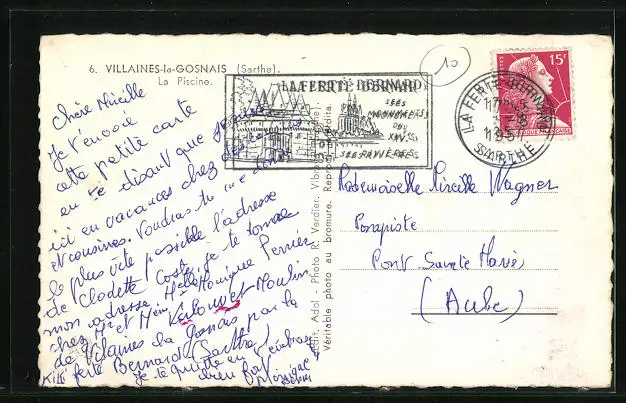 6. VILLAINES-la-GOSNAIS (Sarthe).
La Piscine.
Chère Mireille
Je t'envoie
cette petite carte
en te disant que je suis
ici en vacances chez des
et cousines. Voudras tu me donner
le plus vite possible l'adresse
de Clodette Coste, je te donne
mon adresse. Melle Monique Perrier
chez Mr et Mme Moulin
de Vilaines la Gosnais par la
ferté Bernard (Sarthe)
Je te quitte en t'embrassant
bien fort Monique
Edit. Adol - Photo R. Verdier.
Véritable photo au bromure. Reprod. interdite.
LA FERTÉ-BERNARD
SES
MONUMENTS
DU
XVIe S.
SES RIVIÈRES
LA FERTE-BERNARD
SARTHE
15F
POSTES
REPUBLIQUE FRANÇAISE
10
Mademoiselle Mireille Wagner
Pont Sainte Marie
(Aube)